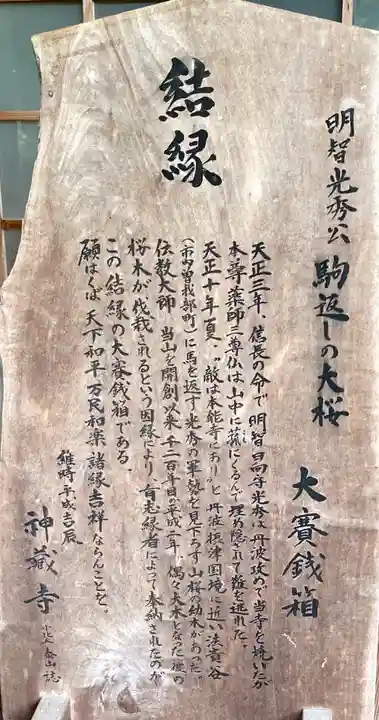 明智光秀公 駒返しの大桜 大賽銭箱
結縁
天正三年、信長の命で明智日向守光秀は丹波攻めで当寺を焼いたが
本尊薬師三尊仏は山中に菰にくるんで埋め隠されて難を逃れた。
天正十年夏、〝敵は本能寺にあり〟と丹波摂津国境に近い法貴谷
(市内曽我部町)に馬を返す光秀の軍勢を見下ろす山桜の幼木があった。
伝教大師 当山を開創以来、千二百年目の平成二年、偶々大木となった彼の
桜木が伐裁されるという因縁により、有志縁者によって奉納されたのが
この結縁の大賽銭箱である。
願はくば 天下和平 万民和楽 諸縁吉祥ならんことを。
維時平成吉辰
神蔵寺 山誌